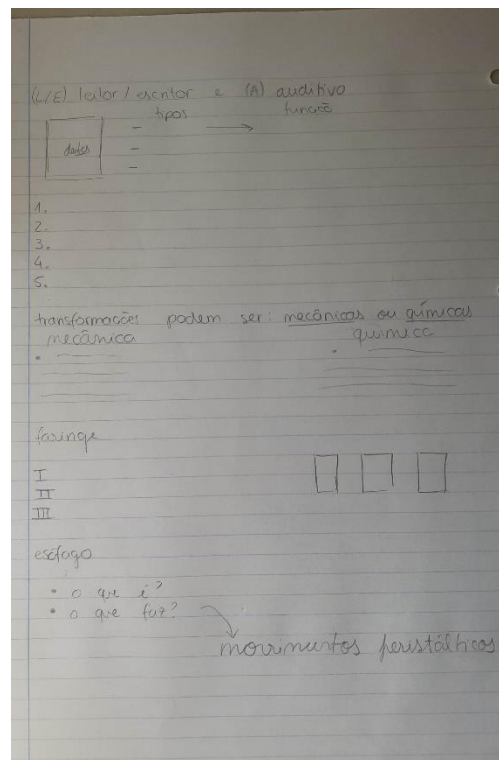 (L/E) leitor / escritor e (A) auditivo
tipos função
dentes
1.
2.
3.
4.
5.
transformações podem ser: mecânicas ou químicas
mecânica química
faringe
I
II
III
esófago
• o que é?
• o que faz?
movimentos peristálticos